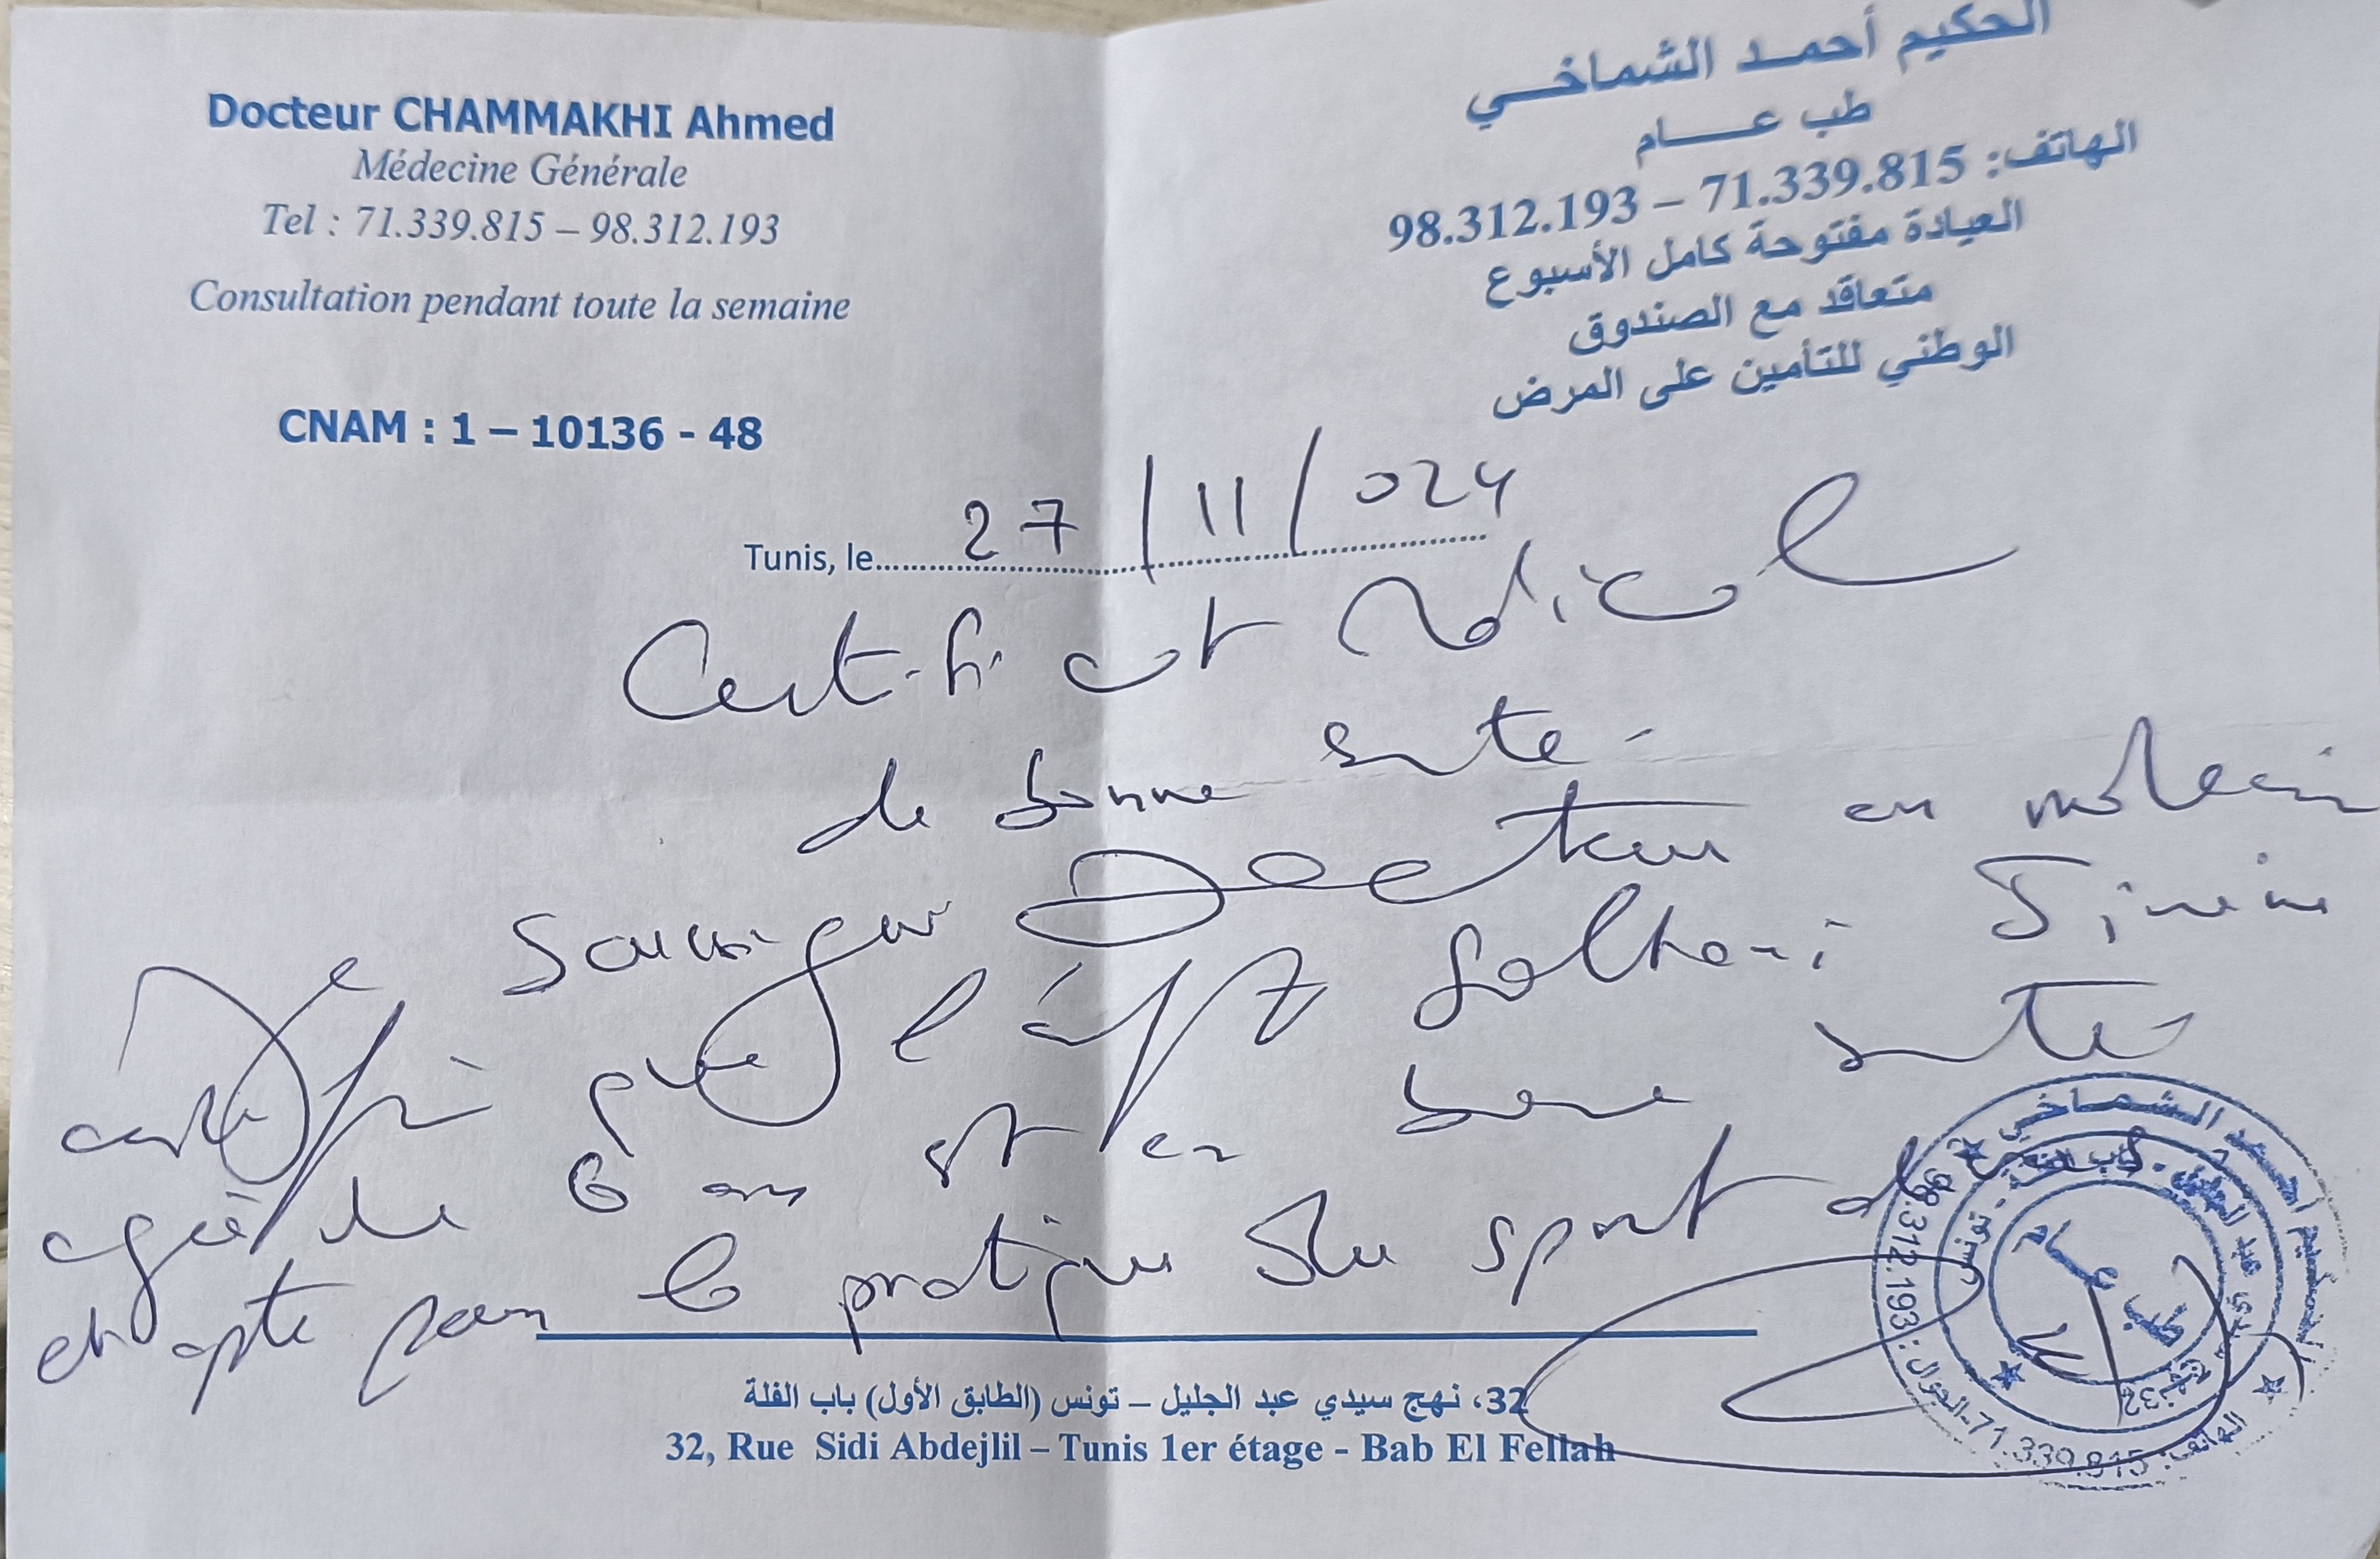 Docteur CHAMMAKHI Ahmed
Médecine Générale
Tel : 71.339.815 – 98.312.193
Consultation pendant toute la semaine
CNAM : 1 – 10136 - 48
الحكيم أحمد الشماخي
طب عام
الهاتف: 71.339.815 – 98.312.193
العيادة مفتوحة كامل الأسبوع
متعاقد مع الصندوق
الوطني للتأمين على المرض
Tunis, le 27/11/024
Certificat Médical
de bonne santé
Je soussigné Docteur en médecine
certifie que l'enft
agée de 6 ans est en bonne santé
et apte pour la pratique du sport
32، نهج سيدي عبد الجليل – تونس (الطابق الأول) باب الفلة
32, Rue Sidi Abdejlil – Tunis 1er étage - Bab El Fellah
طب عام
الهاتف: 71.339.815-الجوال: 98.312.193